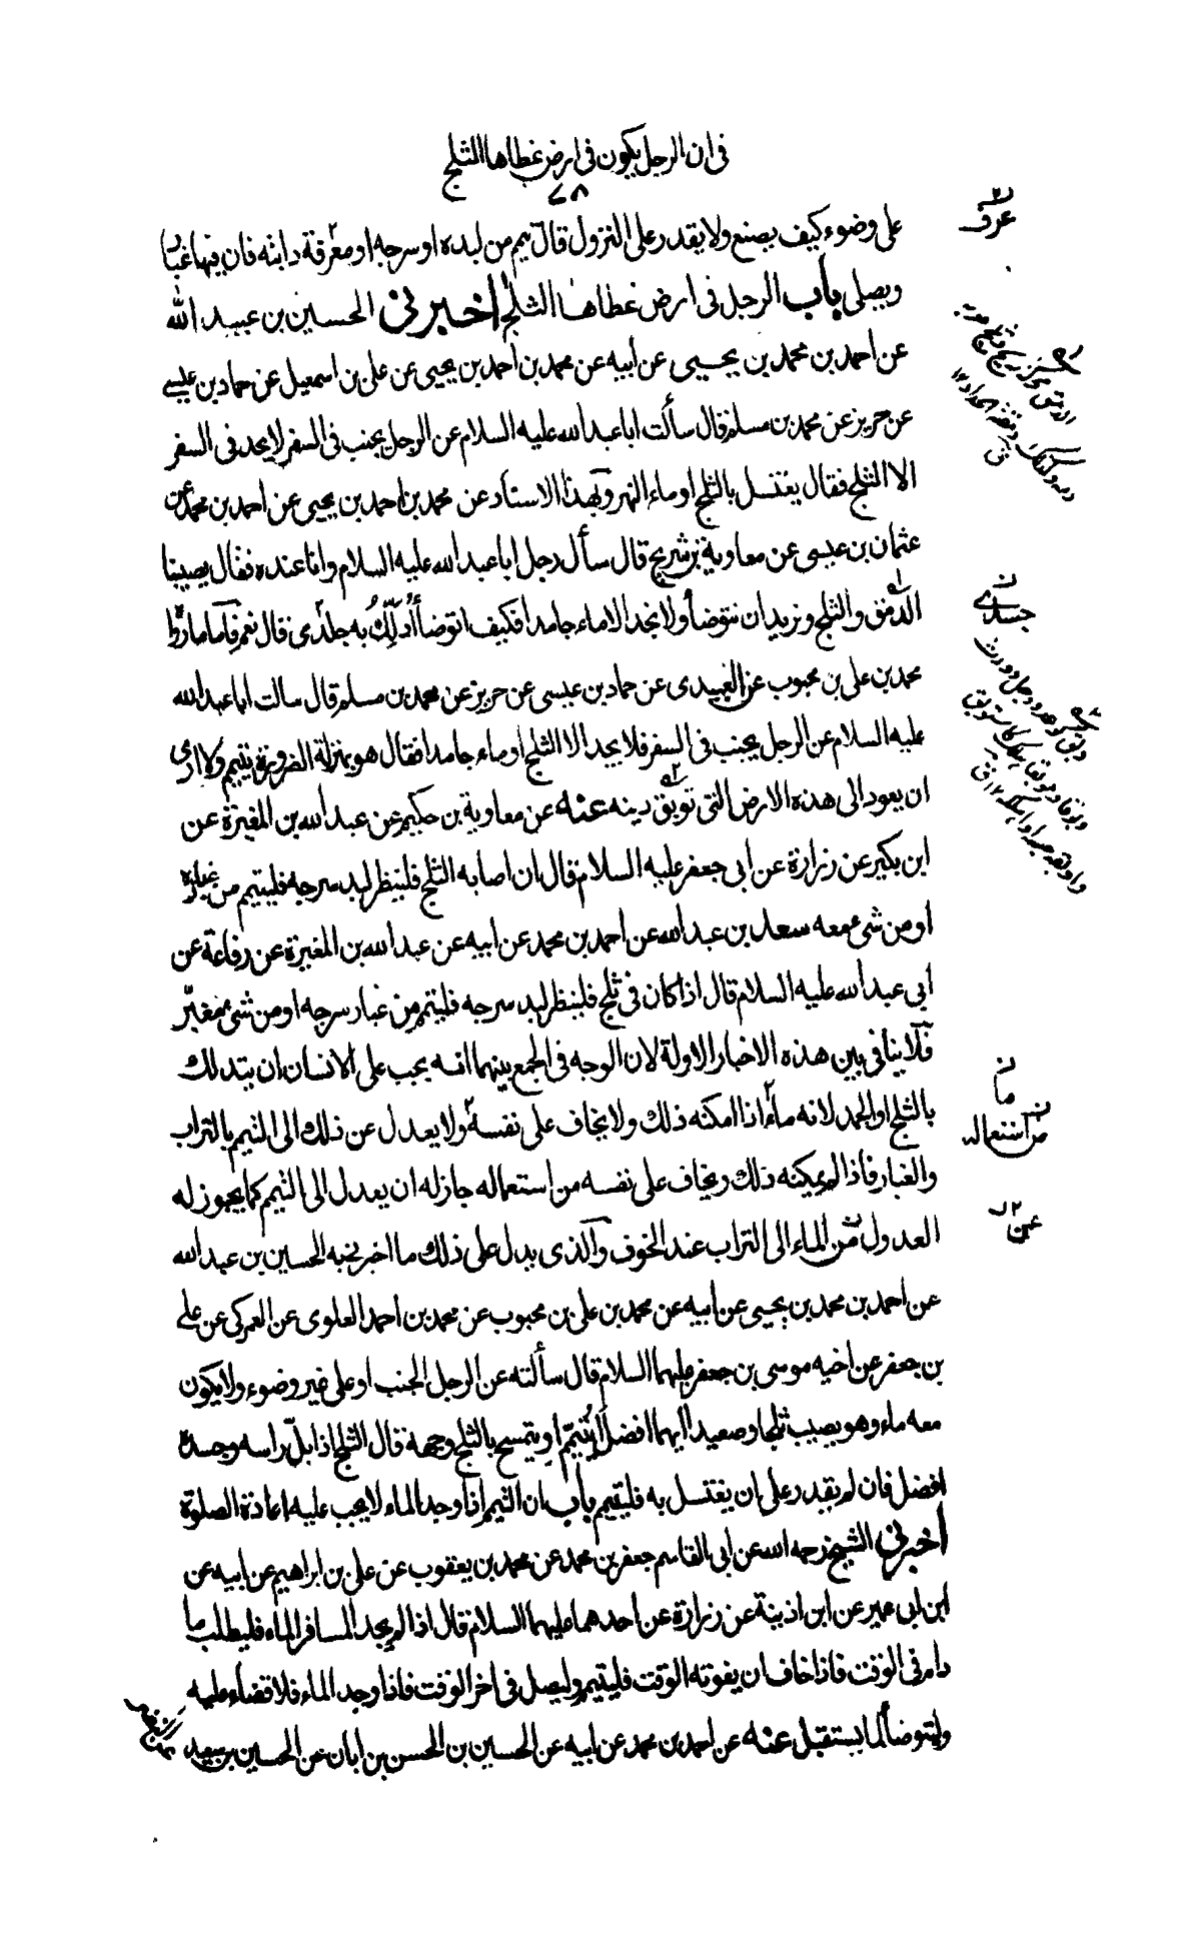 فى ان الرجل يكون فى ارض غطاها الثلج
٧٨
على وضوء كيف يصنع ولا يقدر على النزول قال يتيمم من لبده او سرجه او معرفة دابته فان فيها غبارا
ويصلى باب الرجل فى ارض غطاها الثلج اخبرنى الحسين بن عبيد الله
عن احمد بن محمد بن يحيى عن ابيه عن محمد بن احمد بن يحيى عن على بن اسمعيل عن حماد بن عيسى
عن حريز عن محمد بن مسلم قال سألت ابا عبد الله عليه السلام عن الرجل يجنب فى السفر لا يجد فى السفر
الا الثلج فقال يغتسل بالثلج او ماء النهر وبهذا الاسناد عن محمد بن احمد بن يحيى عن احمد بن محمد عن
عثمان بن عيسى عن معاوية بن شريح قال سأل رجل ابا عبد الله عليه السلام وانا عنده فقال يصيبنا
الدمق والثلج ونريد ان نتوضأ ولا نجد الا ماء جامدا فكيف اتوضأ أدلك به جلدى قال نعم فاما ما رواه
محمد بن على بن محبوب عن العبيدى عن حماد بن عيسى عن حريز عن محمد بن مسلم قال سالت ابا عبد الله
عليه السلام عن الرجل يجنب فى السفر فلا يجد الا الثلج او ماء جامدا فقال هو بمنزلة الضرورة يتيمم ولا ارى
ان يعود الى هذه الارض التى توبق دينه عنه عن معاوية بن حكيم عن عبد الله بن المغيرة عن
ابن بكير عن زرارة عن ابى جعفر عليه السلام قال ان اصابه الثلج فلينظر لبد سرجه فليتيمم من غباره
او من شىء معه سعد بن عبد الله عن احمد بن محمد عن ابيه عن عبد الله بن المغيرة عن رفاعة عن
ابى عبد الله عليه السلام قال اذا كان فى ثلج فلينظر لبد سرجه فليتيمم من غبار سرجه او من شىء مغبر
فلا ينافى بين هذه الاخبار الاولة لان الوجه فى الجمع بينهما انه يجب على الانسان ان يتدلك
بالثلج او الجمد لانه ماء اذا امكنه ذلك ولا يخاف على نفسه ولا يعدل عن ذلك الى التيمم بالتراب
والغبار فاذا لم يمكنه ذلك ويخاف على نفسه من استعماله جاز له ان يعدل الى التيمم كما يجوز له
العدول من الماء الى التراب عند الخوف والذى يدل على ذلك ما اخبر نى به الحسين بن عبيد الله
عن احمد بن محمد بن يحيى عن ابيه عن محمد بن على بن محبوب عن محمد بن احمد العلوى عن العمركى عن على
بن جعفر عن اخيه موسى بن جعفر عليهما السلام قال سألته عن الرجل الجنب او على غير وضوء ولا يكون
معه ماء وهو يصيب ثلجا وصعيدا ايهما افضل أيتيمم او يتمسح بالثلج وجهه قال الثلج اذا بل راسه وجسده
افضل فان لم يقدر على ان يغتسل به فليتيمم باب ان التيمم اذا وجد الماء لا يجب عليه اعادة الصلوة
اخبرنى الشيخ رحمه الله عن ابى القاسم جعفر بن محمد عن محمد بن يعقوب عن على بن ابراهيم عن ابيه عن
ابن ابى عمير عن ابن اذينة عن زرارة عن احدهما عليهما السلام قال اذا لم يجد المسافر الماء فليطلب ما
دام فى الوقت فاذا خاف ان يفوته الوقت فليتيمم وليصل فى اخر الوقت فاذا وجد الماء فلا قضاء عليه
وليتوضأ لما يستقبل عنه عن احمد بن محمد عن ابيه عن الحسين بن الحسن بن ابان عن الحسين بن سعيد
عرف
جسده
ماء
من استعماله
عن